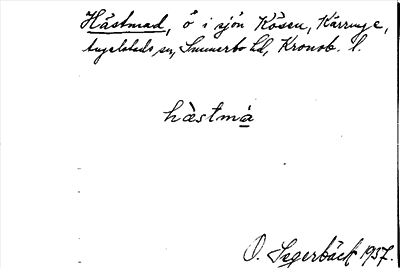 Hästmad, ö i sjön Kösen, Kärrunge,
Angelstads sn, Sunnerbo hd, Kronob. l.
hàstmá̲
O. Segerbäck 1937.